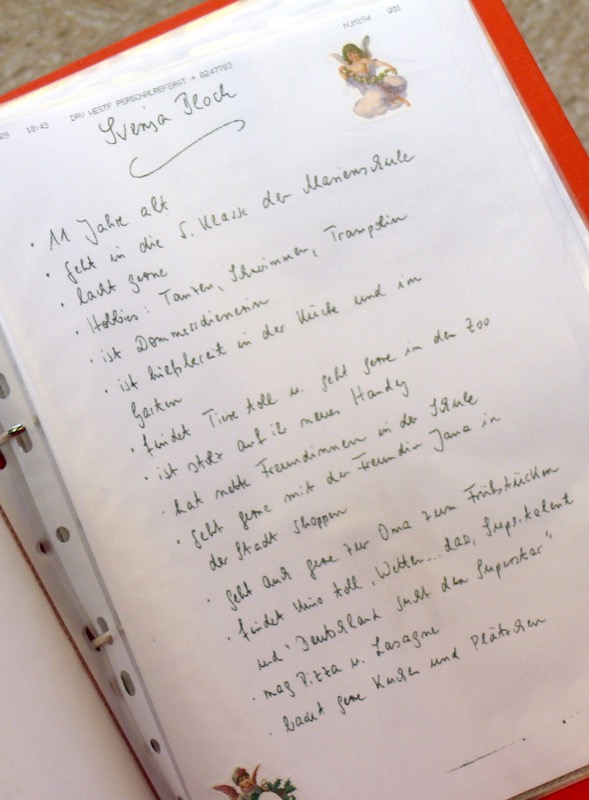 10:43 DRV WESTF PERSONALREFERAT → 0247703 NUM194 001
Svenja Bloch
• 11 Jahre alt
• geht in die 5. Klasse der Marienschule
• lacht gerne
• Hobbies: Tanzen, Schwimmen, Trampolin
• ist Dommessdienerin
• ist hilfsbereit in der Küche und im
Garten
• findet Tiere toll u. geht gerne in den Zoo
• ist stolz auf ihr neues Handy
• hat nette Freundinnen in der Schule
• geht gerne mit der Freundin Jana in
der Stadt shoppen
• geht auch gerne zur Oma zum Frühstücken
• findet Kino toll, "Wetten... das, Supertalent
und "Deutschland sucht den Superstar"
• mag Pizza u. Lasagne
• backt gerne Kuchen und Plätzchen